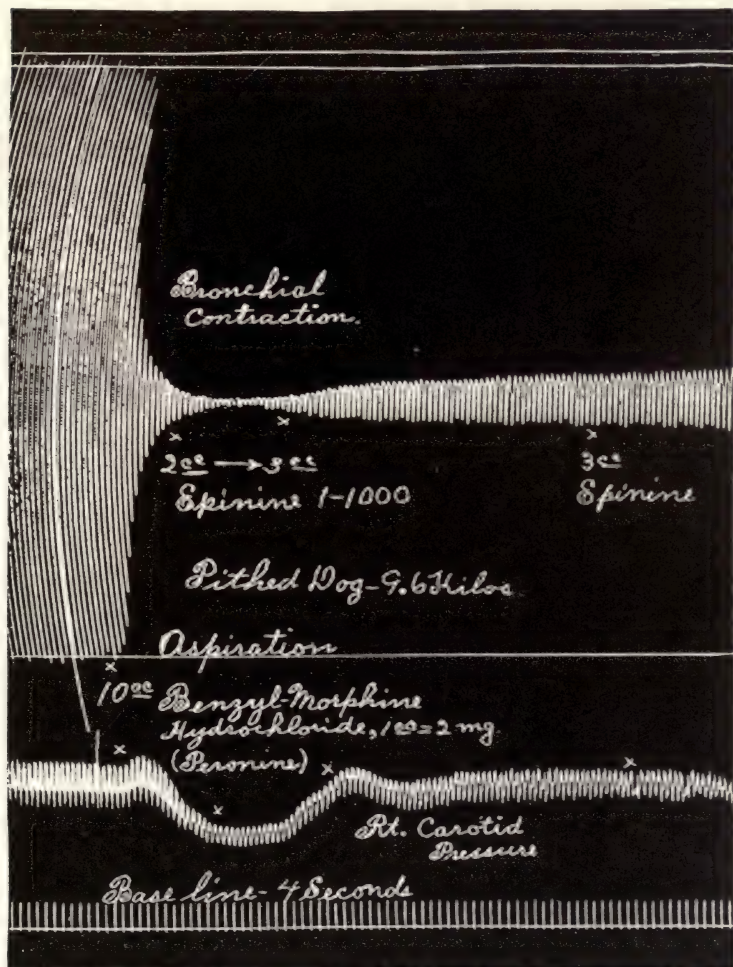 Bronchial
Contraction.
2cc → 3cc
Epinine 1-1000
3cc
Epinine
Pithed Dog-9.6 Kilos
Aspiration
10cc Benzyl-Morphine
Hydrochloride, 1cc=2 mg
(Peronine)
Rt. Carotid
Pressure
Base line-4 Seconds